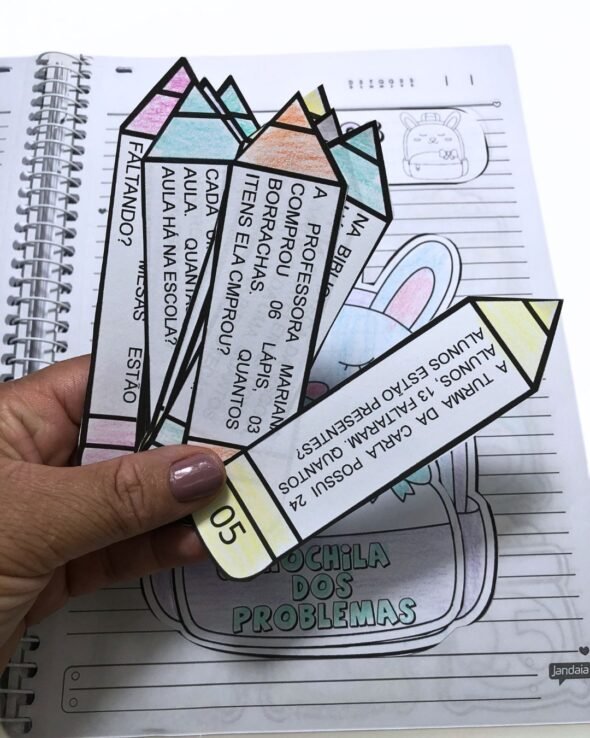 FALTANDO?
MESAS ESTÃO
CADA
AULA. QUANTA
AULA HÁ NA ESCOLA?
A PROFESSORA MARIAN
COMPROU 06 LÁPIS, 03
BORRACHAS. QUANTOS
ITENS ELA CMPROU?
NA
A TURMA DA CARLA POSSUI 24
ALUNOS, 13 FALTARAM. QUANTOS
ALUNOS ESTÃO PRESENTES?
05
OCHILA
DOS
PROBLEMAS
Jandaia